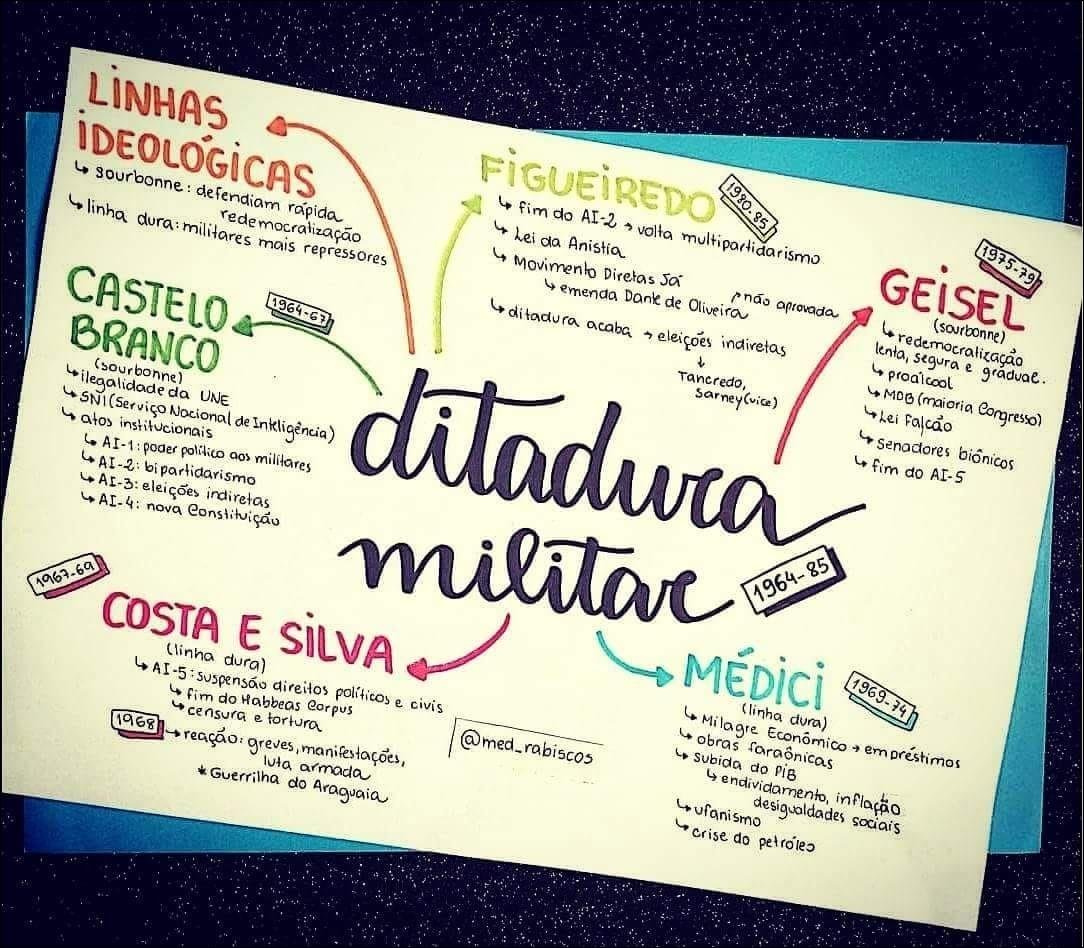 LINHAS
IDEOLÓGICAS
↳ sourbonne: defendiam rápida
redemocratização
↳ linha dura: militares mais repressores
FIGUEIREDO
1980-85
↳ fim do AI-2 → volta multipartidarismo
↳ Lei da Anistia
↳ Movimento Diretas Já
↳ emenda Dante de Oliveira
não aprovada
↳ ditadura acaba → eleições indiretas
↓
Tancredo,
Sarney (vice)
1975-79
GEISEL
(sourbonne)
↳ redemocratização
lenta, segura e gradual.
↳ proálcool
↳ MDB (maioria Congresso)
↳ Lei Falcão
↳ senadores biônicos
↳ fim do AI-5
CASTELO
BRANCO
1964-67
(sourbonne)
↳ ilegalidade da UNE
↳ SNI (Serviço Nacional de Inteligência)
↳ atos institucionais
↳ AI-1: poder político aos militares
↳ AI-2: bipartidarismo
↳ AI-3: eleições indiretas
↳ AI-4: nova Constituição
ditadura
militar
1964-85
1967-69
COSTA E SILVA
(linha dura)
↳ AI-5: suspensão direitos políticos e civis
↳ fim do Habbeas Corpus
↳ censura e tortura
1968
↳ reação: greves, manifestações,
luta armada
* Guerrilha do Araguaia
@med_rabiscos
MÉDICI
1969-74
(linha dura)
↳ Milagre Econômico → empréstimos
↳ obras faraônicas
↳ subida do PIB
↳ endividamento, inflação
desigualdades sociais
↳ ufanismo
↳ crise do petróleo